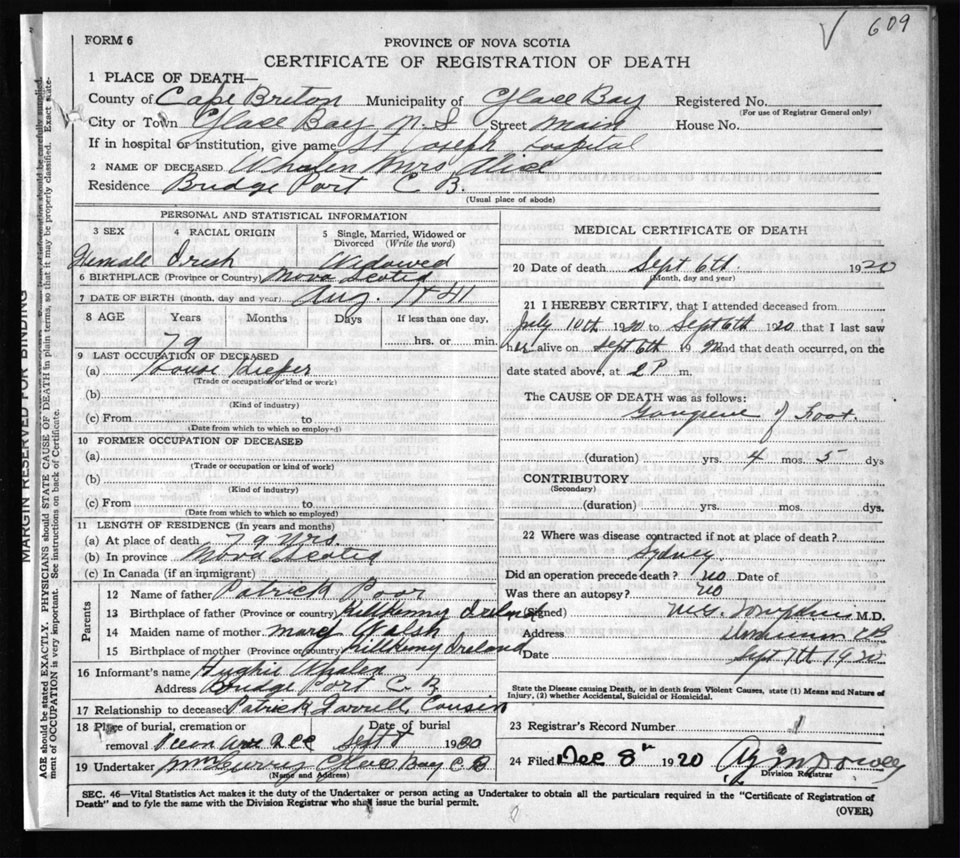 609
FORM 6
PROVINCE OF NOVA SCOTIA
CERTIFICATE OF REGISTRATION OF DEATH
1 PLACE OF DEATH—
County of Cape Briton Municipality of Glace Bay Registered No.
(For use of Registrar General only)
City or Town Glace Bay N.S Street Main House No.
If in hospital or institution, give name St Joseph Hospital
2 NAME OF DECEASED Whalen Mrs Alice
Residence Bridge Port C B.
(Usual place of abode)
PERSONAL AND STATISTICAL INFORMATION
3 SEX 4 RACIAL ORIGIN 5 Single, Married, Widowed or Divorced (Write the word)
Female Irish Widowed
6 BIRTHPLACE (Province or Country) Nova Scotia
7 DATE OF BIRTH (month, day and year) Aug. 1841
8 AGE Years Months Days If less than one day,
79 hrs. or min.
9 LAST OCCUPATION OF DECEASED
(a) House Keeper
(Trade or occupation or kind or work)
(b)
(Kind of industry)
(c) From to
(Date from which to which so employed)
10 FORMER OCCUPATION OF DECEASED
(a)
(Trade or occupation or kind of work)
(b)
(Kind of industry)
(c) From to
(Date from which to which so employed)
11 LENGTH OF RESIDENCE (In years and months)
(a) At place of death 79 yrs.
(b) In province Nova Scotia
(c) In Canada (if an immigrant)
Parents
12 Name of father Patrick Poor
13 Birthplace of father (Province or country) Kilkenny Ireland
14 Maiden name of mother Mary Walsh
15 Birthplace of mother (Province or country) Kilkenny Ireland
16 Informant's name Hughie Whalen
Address Bridge Port C B
17 Relationship to deceased Patrick Farrell, Cousin
18 Place of burial, cremation or removal Date of burial
Sept 8 1920
19 Undertaker Glace Bay C B
(Name and Address)
MEDICAL CERTIFICATE OF DEATH
20 Date of death Sept 6th 1920
(Month, day and year)
21 I HEREBY CERTIFY, that I attended deceased from
July 10th 1920 to Sept 6th 1920 that I last saw
her alive on Sept 6th 1920 and that death occurred, on the
date stated above, at 2 P m.
The CAUSE OF DEATH was as follows:
Gangrene of Foot.
(duration) yrs. 4 mos. 5 dys
CONTRIBUTORY
(Secondary)
(duration) yrs. mos. dys.
22 Where was disease contracted if not at place of death?
Sydney
Did an operation precede death? no Date of
Was there an autopsy? no
(Signed) M.D.
Address Dominion CB
Date Sept 7th 1920
State the Disease causing Death, or in death from Violent Causes, state (1) Means and Nature of
Injury, (2) whether Accidental, Suicidal or Homicidal.
23 Registrar's Record Number 1
24 Filed Dec 8th 1920
Division Registrar
SEC. 46—Vital Statistics Act makes it the duty of the Undertaker or person acting as Undertaker to obtain all the particulars required in the "Certificate of Registration of
Death" and to fyle the same with the Division Registrar who shall issue the burial permit.
(OVER)
MARGIN RESERVED FOR BINDING
AGE should be stated EXACTLY. PHYSICIANS should STATE CAUSE OF DEATH in plain terms, so that it may be properly classified. Exact state-
ment of OCCUPATION is very important. See instructions on back of Certificate.